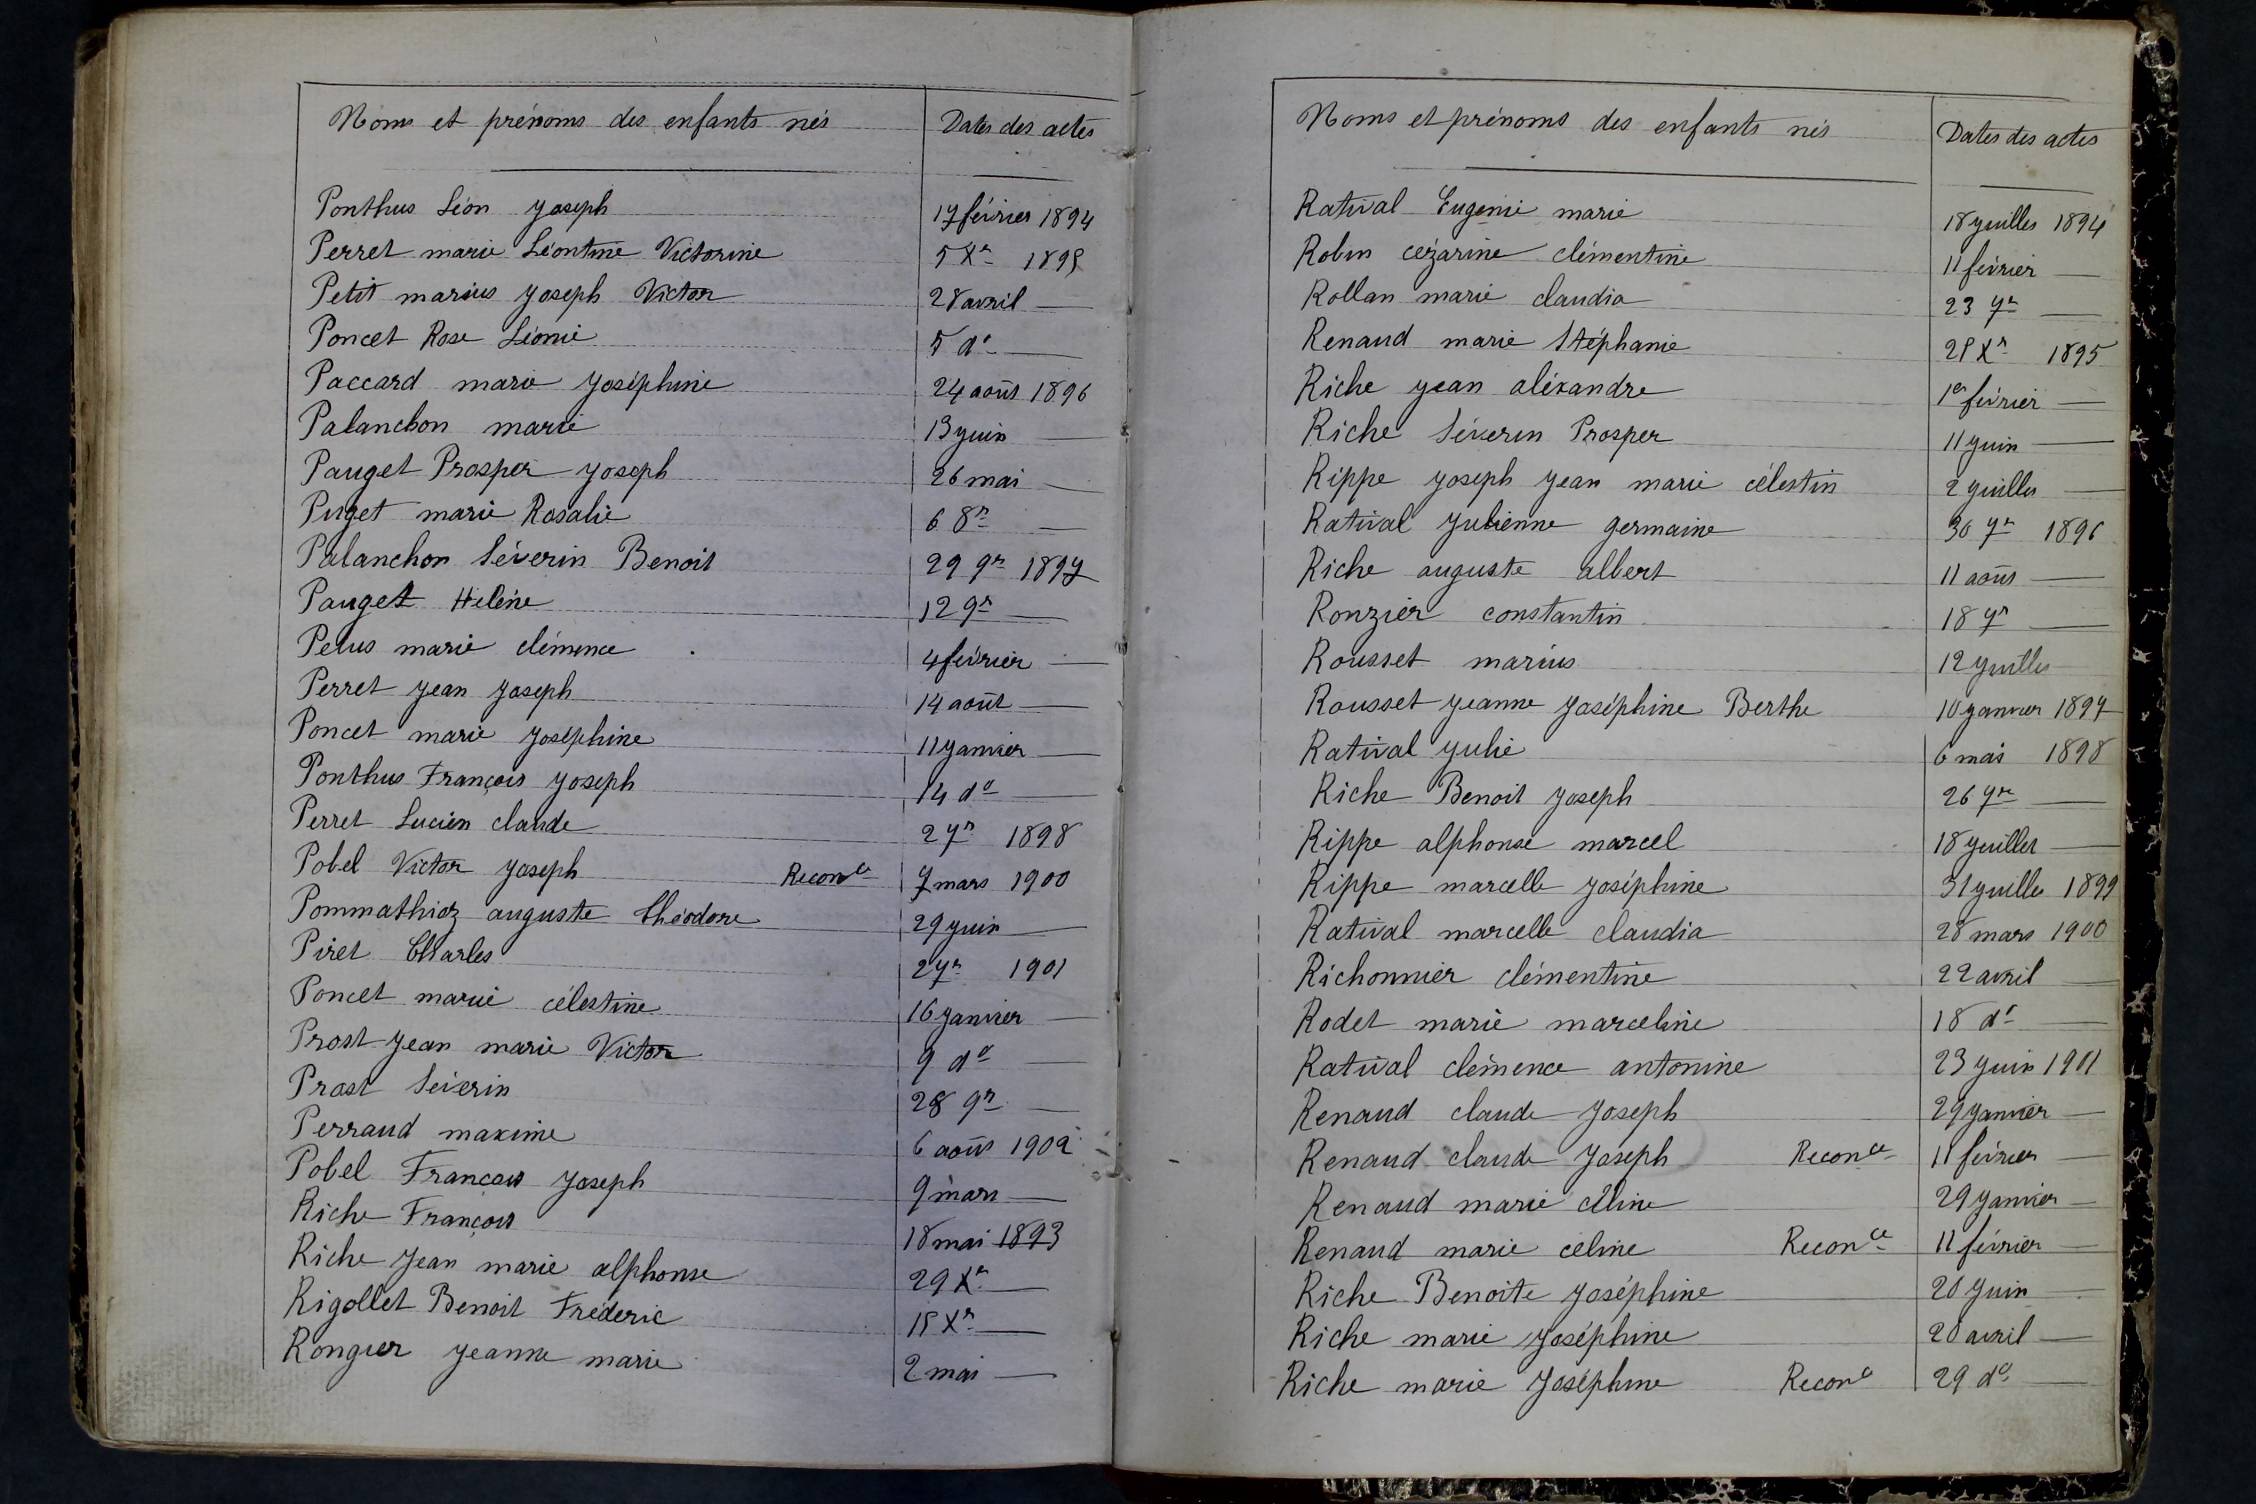 Noms et prénoms des enfants nés Dates des actes
Ponthus Léon Joseph 17 février 1894
Perret marie Léontine Victorine 5 Xr 1895
Petit marius Joseph Victor 28 avril —
Poncet Rose Léonie 5 do —
Paccard marie Joséphine 24 août 1896
Palanchon marie 13 juin —
Pauget Prosper Joseph 26 mai —
Puget marie Rosalie 6 8r —
Palanchon Séverin Benoit 29 9r 1897
Pauget Hélène 12 9r —
Pelus marie clémence 4 février —
Perret Jean Joseph 14 août —
Poncet marie Joséphine 11 janvier —
Ponthus François Joseph 14 do —
Perret Lucien claude 2 7r 1898
Pobel Victor Joseph Reconce 7 mars 1900
Pommathioz auguste théodore 29 juin —
Piret Charles 2 7r 1901
Poncet marie célestine 16 janvier —
Prost Jean marie Victor 9 do —
Prost Séverin 28 9r —
Perraud maxime 6 août 1902
Pobel François Joseph 9 mars —
Riche François 18 mai 1893
Riche Jean marie alphonse 29 Xr —
Rigollet Benoit Fréderic 15 Xr —
Rongier Jeanne marie 2 mai —
Noms et prénoms des enfants nés Dates des actes
Ratival Eugenie marie 18 juillet 1894
Robin cézarine clémentine 11 février —
Rollan marie claudia 23 7r —
Renaud marie Stéphanie 25 Xr 1895
Riche Jean aléxandre 1er février —
Riche Séverin Prosper 11 juin —
Rippe Joseph Jean marie célestin 2 juillet —
Ratival Julienne germaine 30 7r 1896
Riche auguste albert 11 août —
Ronzier constantin 18 7r —
Rousset marius 12 juillet
Rousset Jeanne Joséphine Berthe 10 janvier 1897
Ratival Julie 6 mai 1898
Riche Benoit Joseph 26 9re —
Rippe alphonse marcel 18 juillet —
Rippe marcelle Joséphine 31 juillet 1899
Ratival marcelle claudia 28 mars 1900
Richonnier clémentine 22 avril —
Rodet marie marceline 18 do —
Ratival clémence antonine 23 juin 1901
Renaud claude Joseph 29 janvier —
Renaud claude Joseph Reconce 11 février —
Renaud marie céline 29 janvier —
Renaud marie céline Reconce 11 février —
Riche Benoite Joséphine 20 juin —
Riche marie Joséphine 20 avril —
Riche marie Joséphine Reconce 29 do —